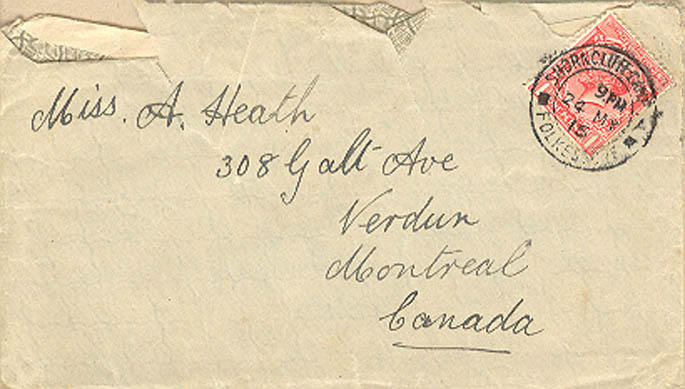 Miss. A. Heath
308 Galt Ave
Verdun
Montreal
Canada
SHORNCLIFFE CAMP
9 PM
24 MY
15
FOLKESTONE